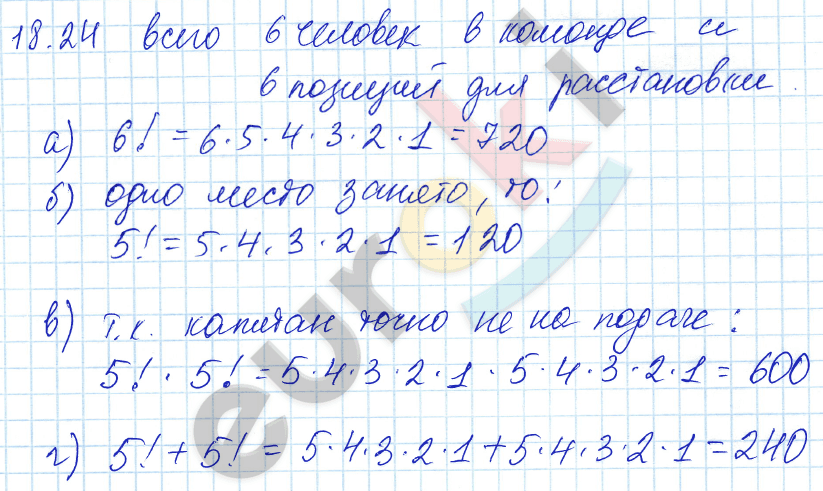 18.24 всего 6 человек в команде и
6 позиций для расстановки.
а) 6! = 6·5·4·3·2·1 = 720
б) одно место занято, то:
5! = 5·4·3·2·1 = 120
в) т.к. капитан точно не на подаче:
5! · 5! = 5·4·3·2·1 · 5·4·3·2·1 = 600
г) 5! + 5! = 5·4·3·2·1 + 5·4·3·2·1 = 240
euroki